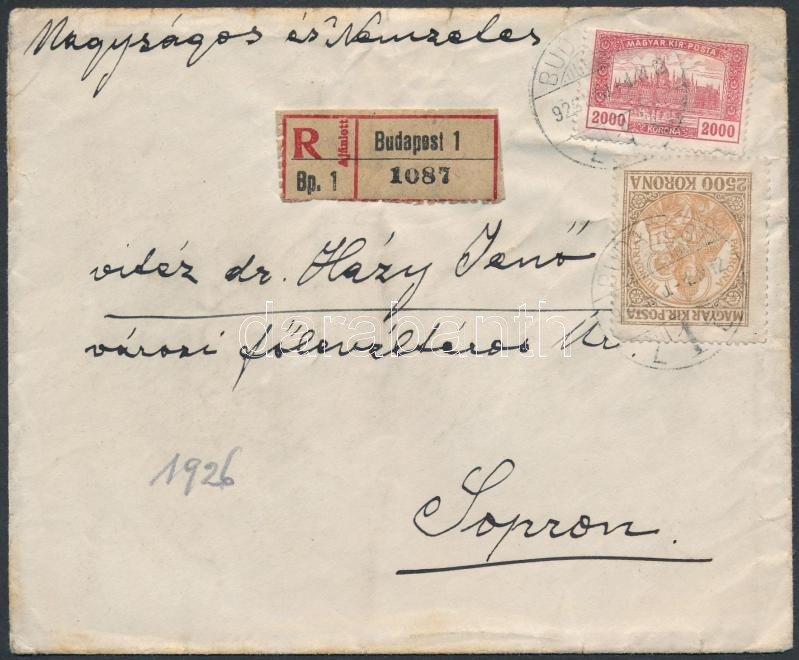 Nagyságos és Nemzetes
MAGYAR KIR. POSTA
2000 KORONA 2000
R Ajánlott
Bp. 1
Budapest 1
1087
2500 KORONA
PATRONA HUNGARIAE
MAGYAR KIR. POSTA
vitéz dr. Házy Jenő
városi főlevéltáros Úr
darabanth
1926
Sopron.